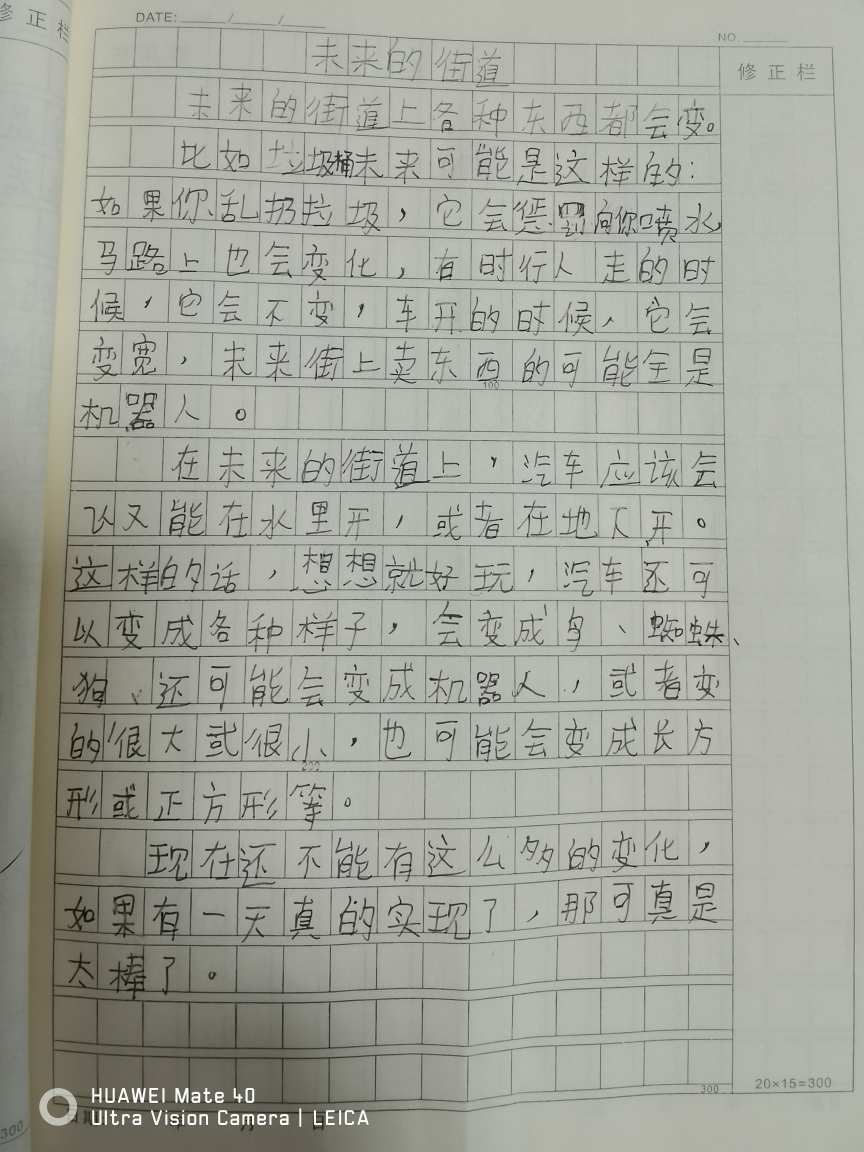 修正栏
DATE: / /
NO.
修正栏
未来的街道
未来的街道上各种东西都会变。
比如垃圾桶未来可能是这样的：
如果你乱扔垃圾，它会惩罚向你喷水，
马路上也会变化，有时行人走的时
候，它会不变，车开的时候，它会
变宽，未来街上卖东西的可能全是
100
机器人。
在未来的街道上，汽车应该会
飞又能在水里开，或者在地下开。
这样的话，想想就好玩，汽车还可
以变成各种样子，会变成鸟、蜘蛛、
狗、还可能会变成机器人，或者变
的很大或很小，也可能会变成长方
200
形或正方形等。
现在还不能有这么多的变化，
如果有一天真的实现了，那可真是
太棒了。
300
20×15=300
300
HUAWEI Mate 40
Ultra Vision Camera | LEICA